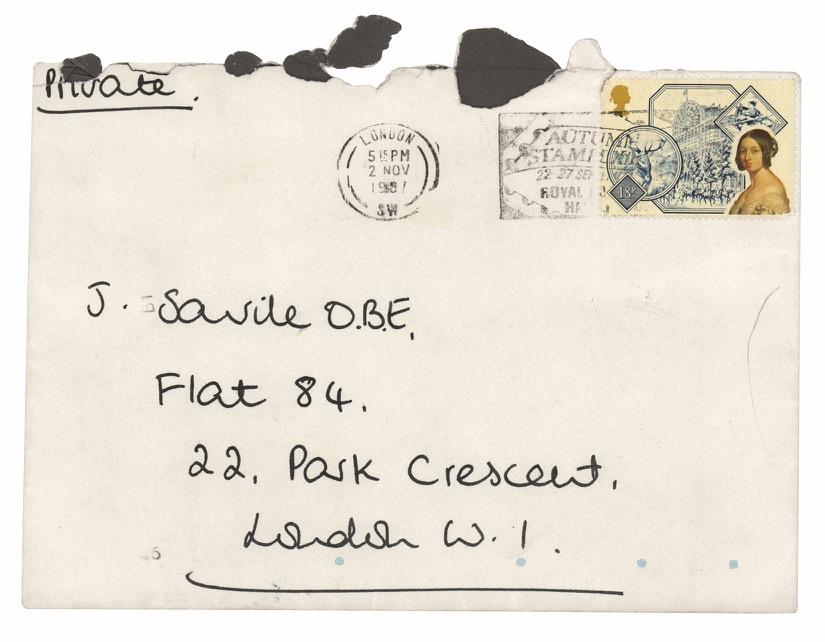 Private.
LONDON
5 15 PM
2 NOV
1987
SW
AUTUMN
STAMPEX
22-27 SEP
ROYAL
18P
J. Savile O.B.E,
Flat 84.
22, Park Crescent,
London W.1.